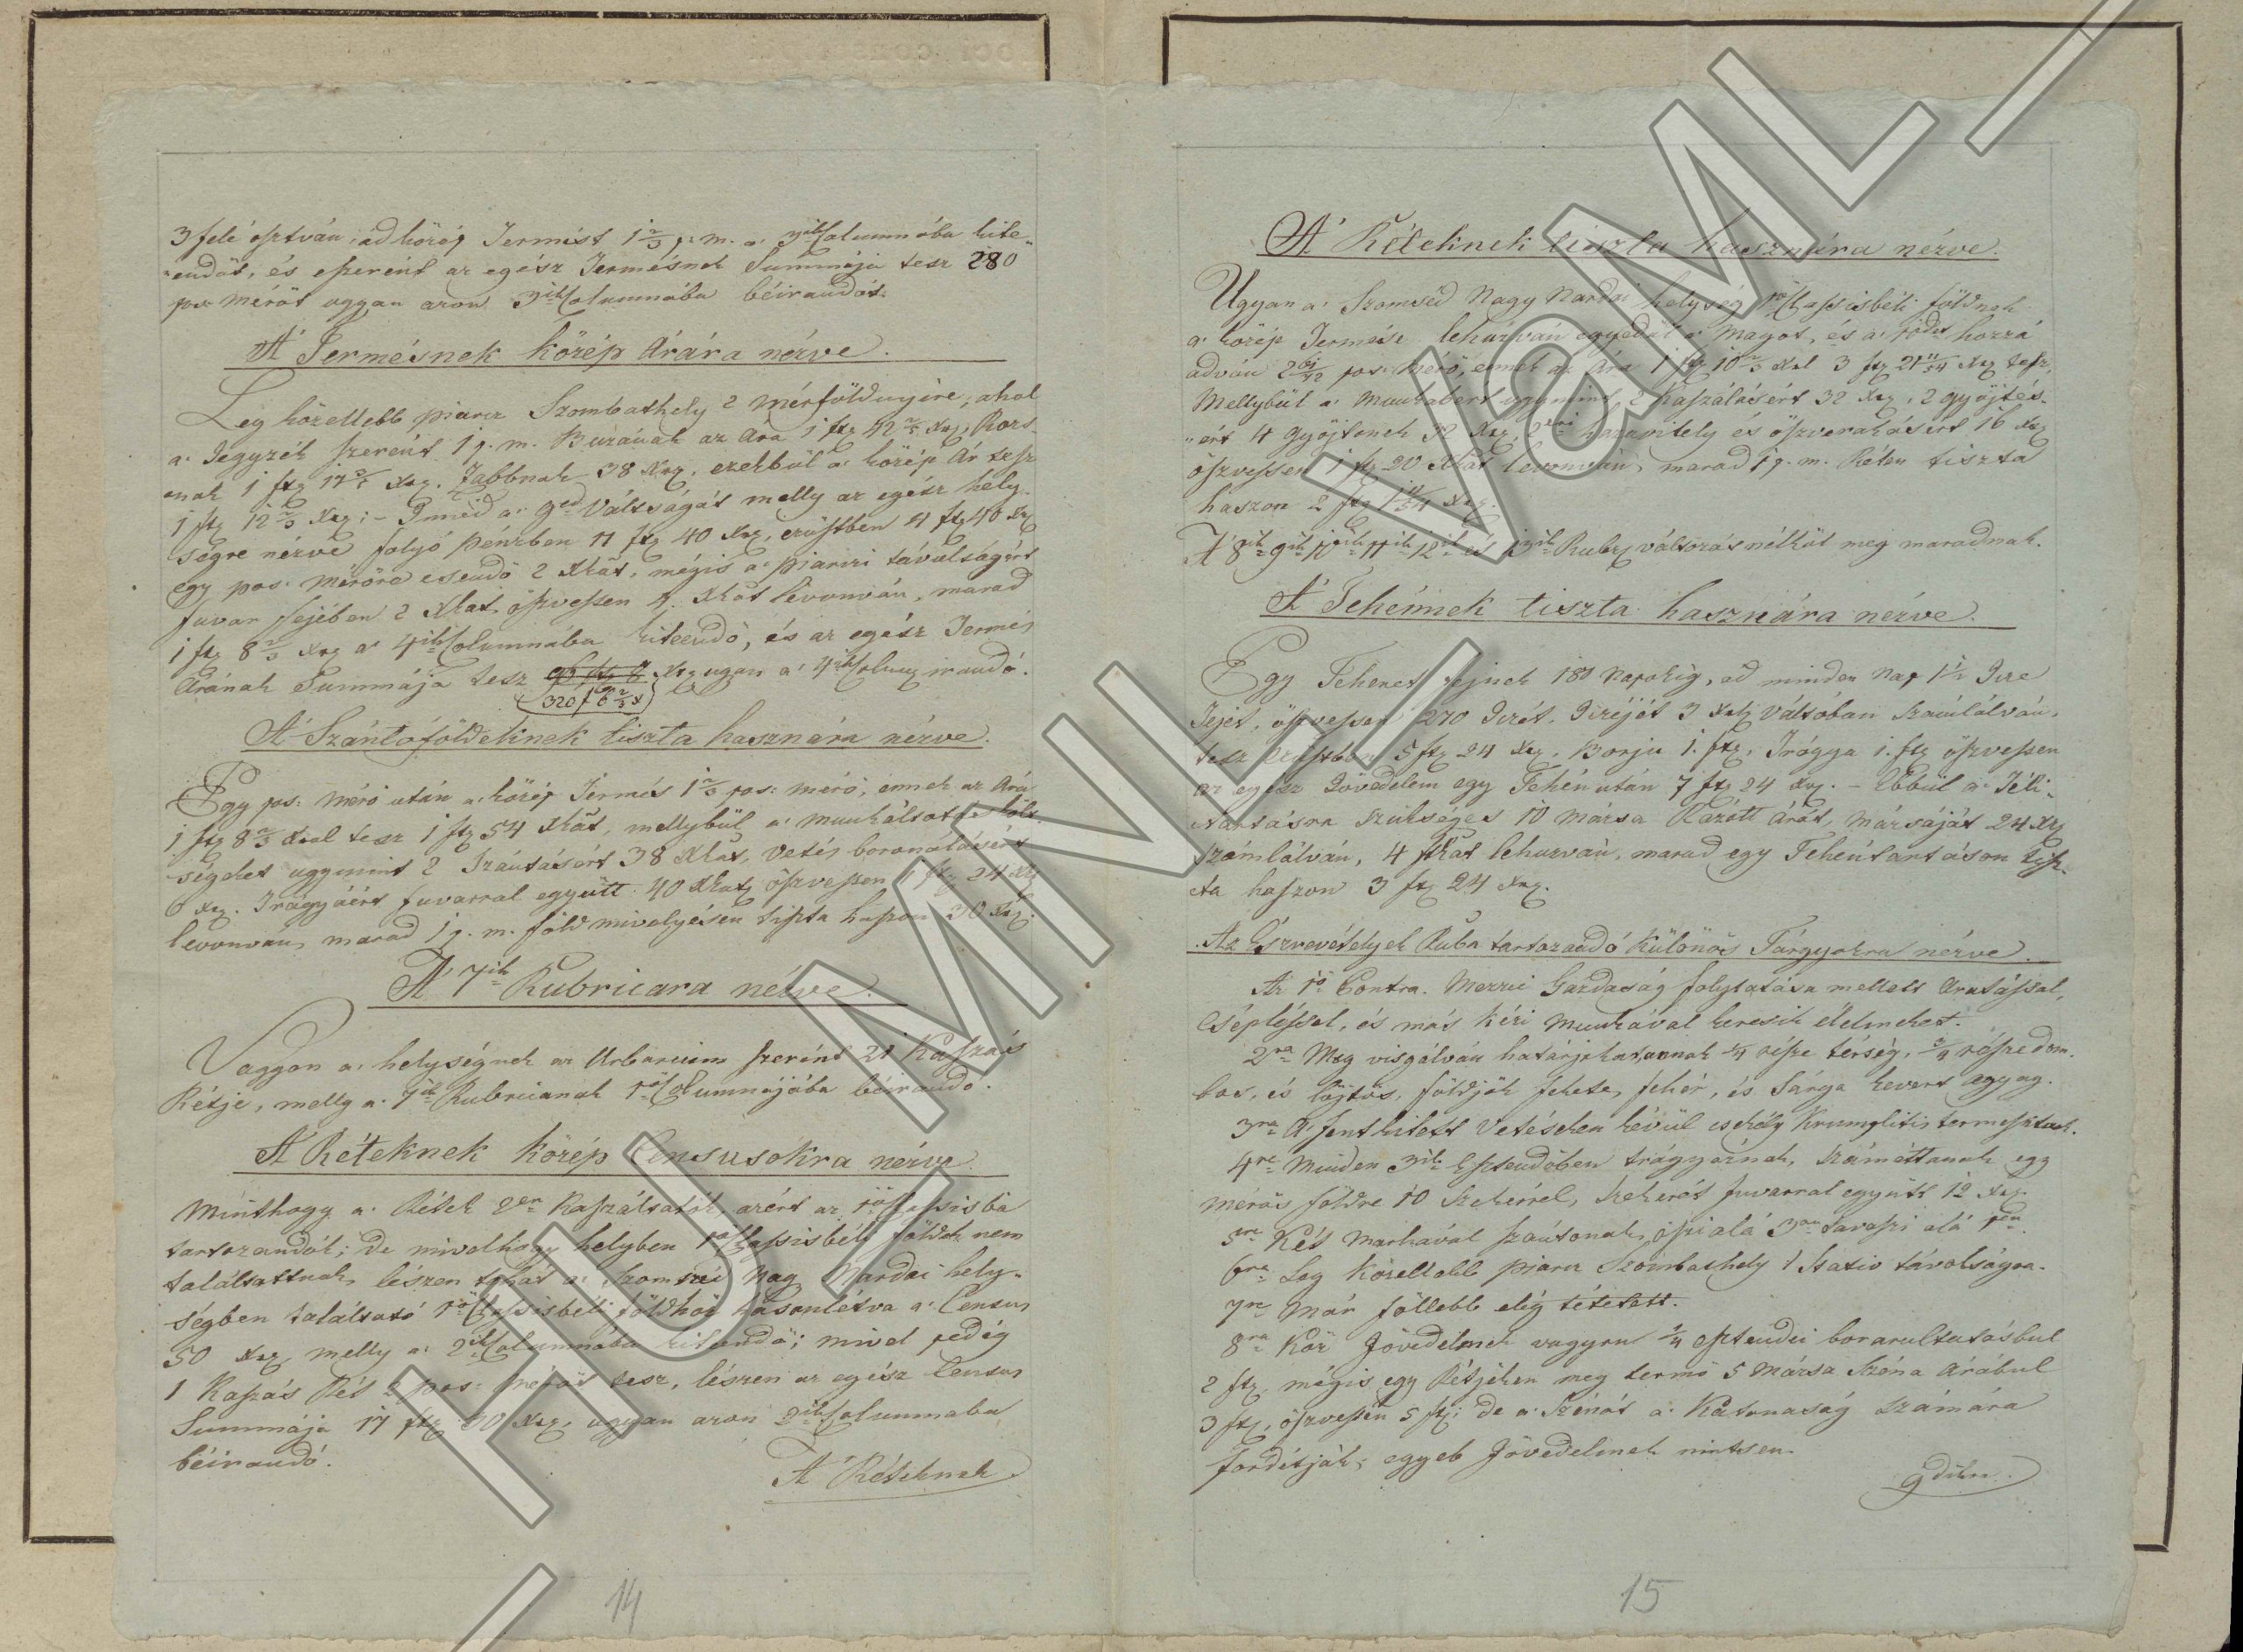 3 felé osztván, ad közép Termést 1 2/3 p. m. a' 3ik Columnába kite„
„endőt, és eszerént az egész Termésnek Summája tesz 280
pos mérőt uggan azon 3ik Columnába béirandót.
A' Termésnek közép Árára nézve.
Leg közellebb piarcz Szombathely 2 mérföldnyire, ahol
a' Jegyzék szerént 1 p. m. Buzának az Ára 1 ftg 42 2/5 Xrg, Rozs„
„nak 1 ftg 17 2/5 Xrg. Zabbnak 38 Xrg, ezekbül a' közép Ár tesz
1 ftg 12 2/3 Xrg; – Innéd a' 9ed Váltságát melly az egész hely„
ségre nézve folyó pénzben 11 ftg 40 Xrg, ezüstben 4 ftg 40 Xrg
egy pos. mérőre esendő 2 Xkát, mégis a' piarczi távulságért
fuvar fejében 2 Xkat, öszvessen 4. Xkát levonván, marad
1 ftg 8 2/3 Xrg a' 4ik Columnába kiteendő, és az egész Termés
Árának Summája tesz Xrg ugan a' 4ik Columg irandó.
320 f 6 2/3 x
A' Szántóföldeknek tiszta hasznára nézve.
Egy pos: mérő után a' közép Termés 1 2/3 pos: mérő, ennek az Ára
1 ftg 8 2/3 Xral tesz 1 ftg 54 Xkát, mellybül a' munkáltatási költ„
ségeket uggymint 2 Szántásért 38 Xkát, Vetés boronálásért
6 Xrg. Trágyáért fuvarral együtt 40 Xkat, öszvessen 1 ftg 24 Xrg
levonván, marad 1 p. m. föld mivelyésen tiszta haszon 30 Xrg.
A' 7ik Rubricara nézve.
Vaggon a' helységnek az Urbarium szerént 21 Kaszás
Rétje, melly a' 7ik Rubricanak 1ső Columnájába béirandó.
A' Réteknek közép Censusokra nézve
Minthogy a' Rétek 2szer Kaszáltatók, azért az 1ső Classisba
tartozandók; de mivelhogy helyben 1ső Classisbéli földek nem
találtattnak, lészen tehát a' szomszéd Nagy Nardai hely„
ségben találtató 1ső Classisbéli földhöz hasonlétva a' Census
50 Xrg, melly a' 2ik Columnába kitendő; mivel pedég
1 Kaszás Rét 2 pos: mérőt tesz, lészen az egész Census
Summája 17 ftg 30 Xrg, ugyan azon 2ik Columnaba
béirandó.
A' Réteknek
14
A' Réteknek tiszta hasznára nézve.
Ugyan a' Szomséd Nagy Nardai helység 1ső Classisbéli földnek
a' közép Termése lehúzván egyedül a' magot, és a' hozzá
adván pos. Mérő, ennek az Ára 1 ftg 10 2/3 Xal 3 ftg 21 Xrg tesz,
Mellybül a' Munkabért uggymint, 2 Kaszálásért 32 Xrg, 2 gyöjtés„
„ért 4 gyöjtőnek 32 Xrg, és öszverakásért 16 Xrg
öszvessen 1 ftg 20 Xkát levonván, marad 1 p. m. Réten tiszta
haszon 2 ftg 1 Xrg.
A' 8ik 9ik 10ik 11ik 12ik és 13ik Rubrg változás nélkül meg maradnak.
A' Tehénnek tiszta hasznára nézve.
Egy Tehenet fejnek 180 Napokig, ad minden Nap 1 1/2 Icze
Tejet, öszvessen 270 Iczét, Iczéjét 3 Xrg Váltóban Számlálván,
tesz ezüstben 5 ftg 24 Xrg, Borju 1. ftg, Trágya 1. ftg öszvessen
az egész Jövedelem egy Tehén után 7 ftg 24 Xrg. – Ebbül a' Téli„
„tartásra Szükséges 10 mázsa Rázott Árát, Mázsáját 24 Xrg
Számlálván, 4 ftkat lehuzván, marad egy Tehéntartáson tisz„
„ta haszon 3 ftg 24 Xrg.
Az Észrevételyek Ruba tartozandó Különös Tárgyokra nézve.
Az 1ő Contra. Mezzei Gazdaság folytatása mellett Aratással,
Cséplessel, és más kézi munkával keresik élelmeket.
2ra Meg visgálván határjokat vannak 1/4 része térség, 3/4 része dom„
bos, és lejtős, földjök fekete, fehér, és Sárga kevert agyag.
3ra A' fent kitett Vetéseken kévül csekély Krumplitis termesztnek.
4re Minden 3ik Esztendőben trágyáznak, Száméttanak egg
mérős földre 10 Szekérrel, Szekerét fuvarral együtt 12 Xrg.
5re Két Markával szántonak, öszi alá 3or tavaszi alá 1er
6ra Leg közellebb piarcz Szombathely 1 Statio távolságra.
7re Már föllebb elég tétetett.
8ra Köz Jövedelmek vagyon 1/4 esztendei borarultatásbul
2 ftg, mégis egy Rétjeken meg termő 5 Mázsa Széna Árábul
3 ftg, öszvessen 5 ftg; de a' Szénát a' Katonaság Számára
fordétják, eggyeb Jövedelmek nintsen.
9dikre
15
HU MNL VaML